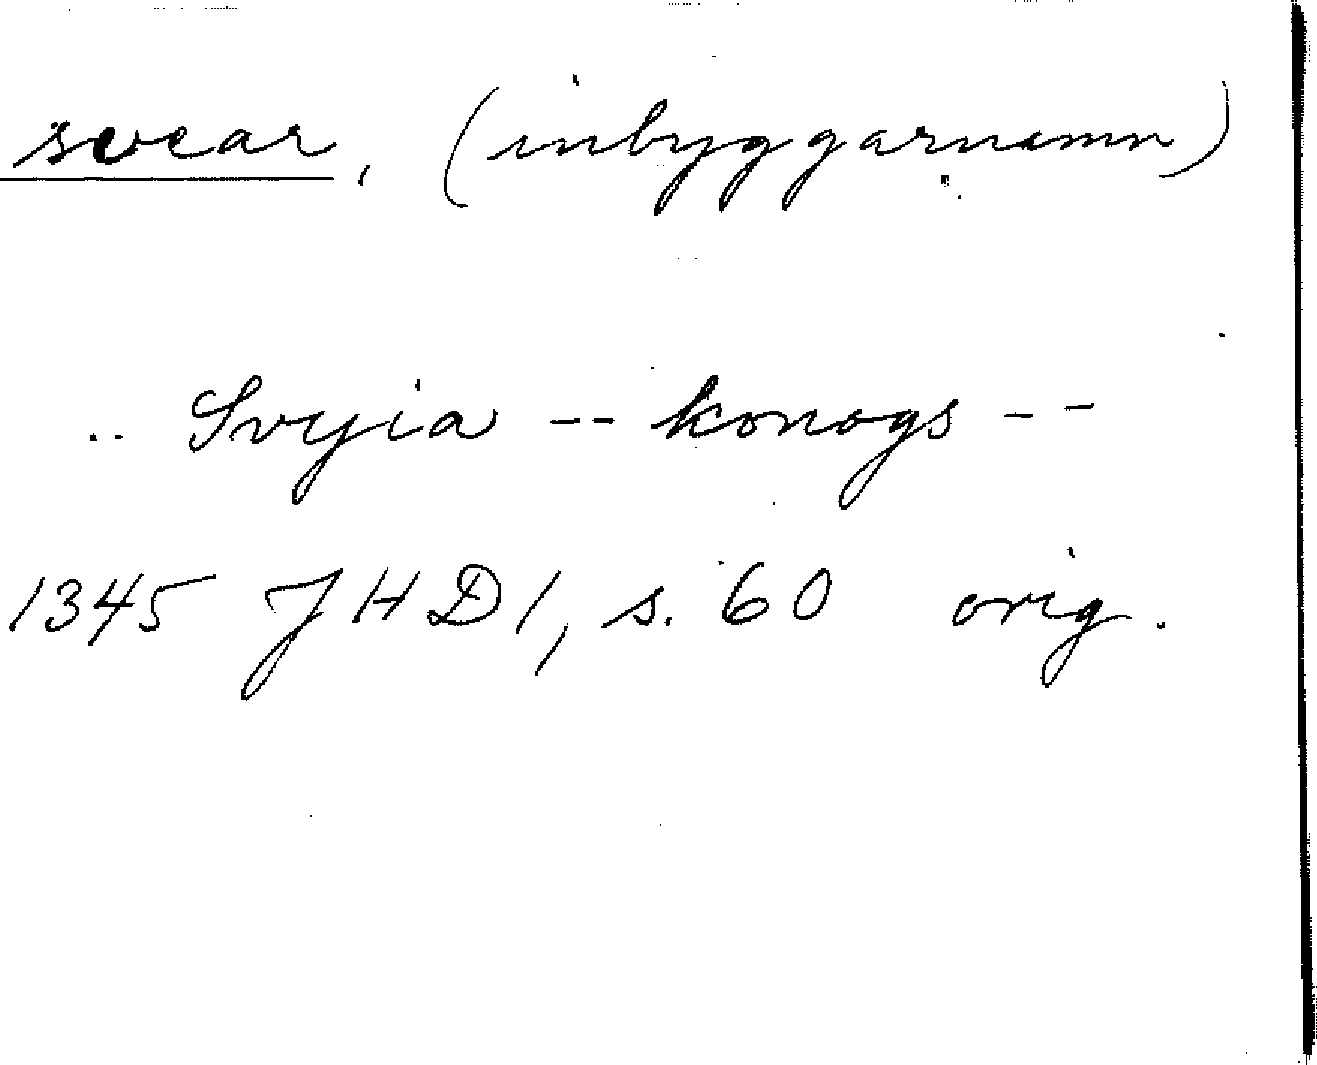 svear, (inbyggarnamn)
.. Svyia -- konogs --
1345 JHD 1, s. 60 orig.